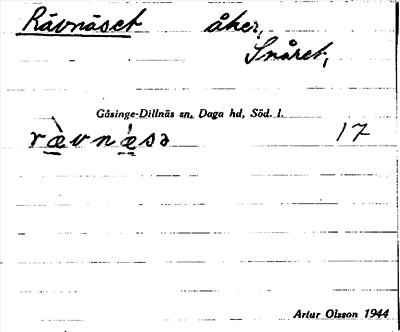 Rävnäset åker,
Snåret,
Gåsinge-Dillnäs sn. Daga hd, Söd. l.
ræ̀vnǽsə 17
Artur Olsson 1944